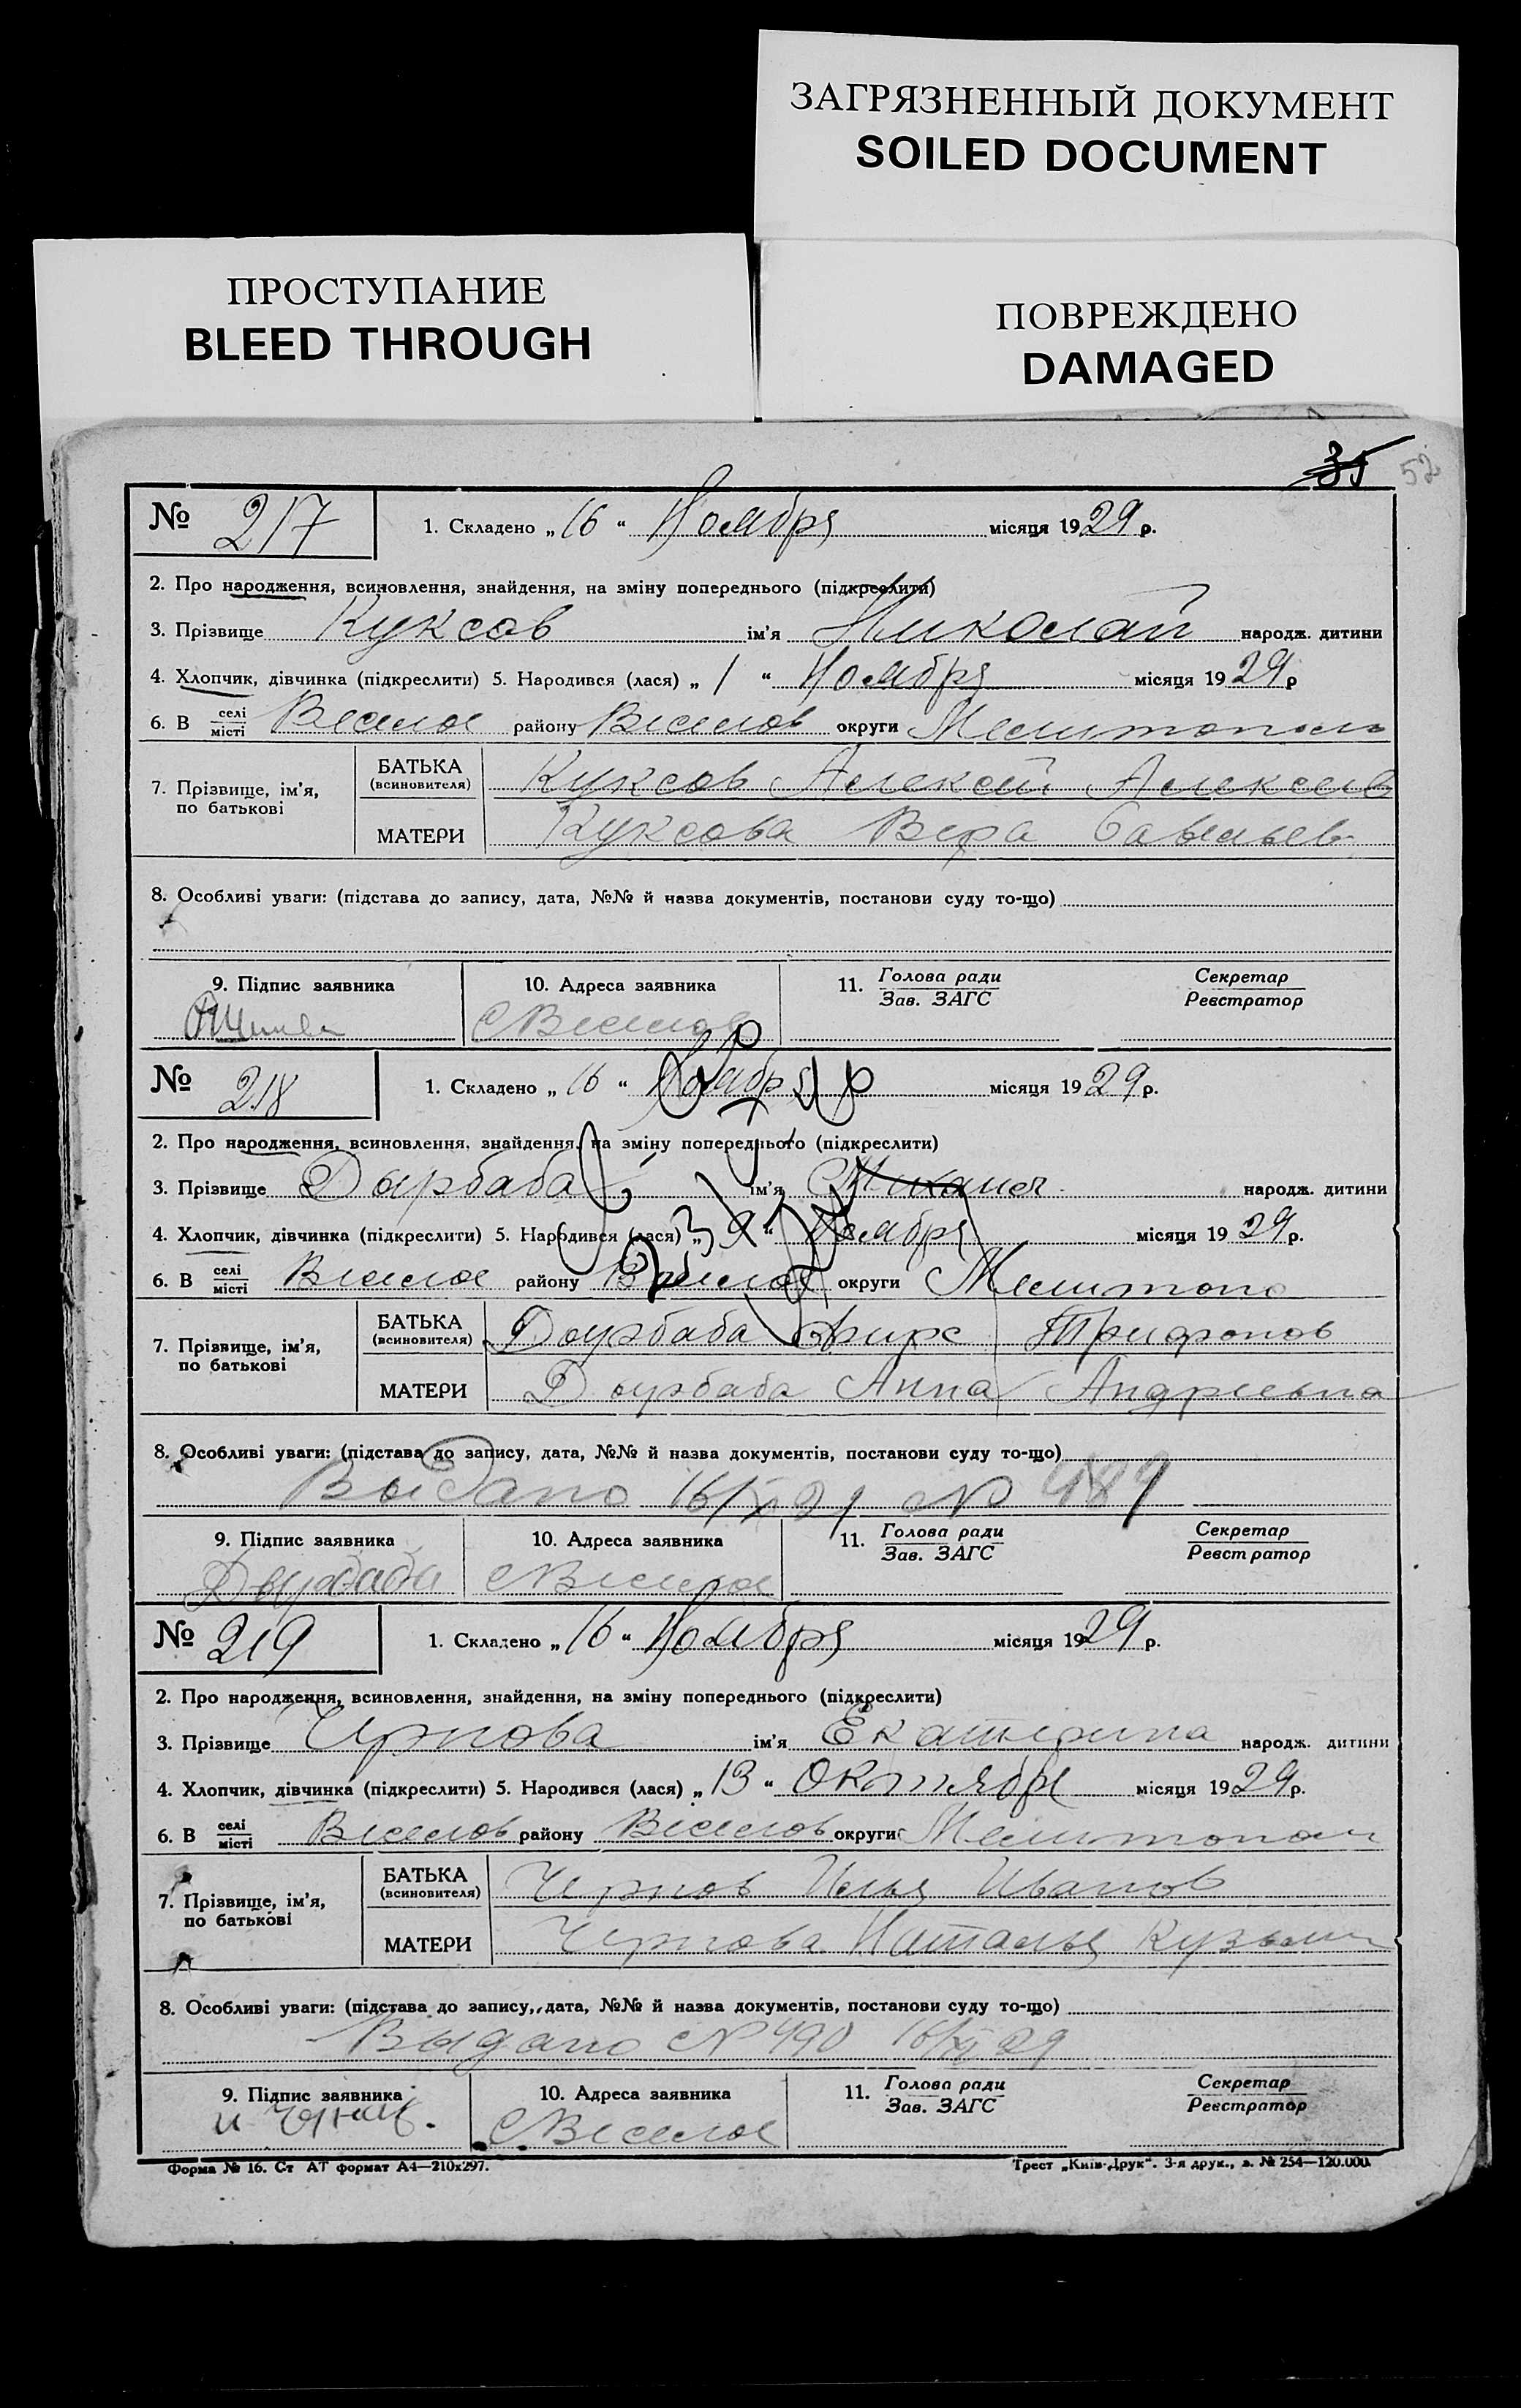 ЗАГРЯЗНЕННЫЙ ДОКУМЕНТ
SOILED DOCUMENT
ПРОСТУПАНИЕ
BLEED THROUGH
ПОВРЕЖДЕНО
DAMAGED
35 52
№ 217 1. Складено „16“ Ноября місяця 1929 р.
2. Про народження, всиновлення, знайдення, на зміну попереднього (підкреслити)
3. Прізвище Куксов ім'я Николай народж. дитини
4. Хлопчик, дівчинка (підкреслити) 5. Народився (лася) „1“ Ноября місяця 1929 р
6. В селі місті Веселое району Веселов округи Мелитополь
7. Прізвище, ім'я, по батькові
БАТЬКА (всиновителя) Куксов Алексей Алексеев
МАТЕРИ Куксова Вера Савельев
8. Особливі уваги: (підстава до запису, дата, №№ й назва документів, постанови суду то-що)
9. Підпис заявника 10. Адреса заявника 11. Голова ради Зав. ЗАГС Секретар Реєстратор
С Веселое
№ 218 1. Складено „16“ Ноября місяця 1929 р.
2. Про народження, всиновлення, знайдення, на зміну попереднього (підкреслити)
3. Прізвище Дырбаба ім'я Михаил народж. дитини
4. Хлопчик, дівчинка (підкреслити) 5. Народився (лася) „ “ Ноября місяця 1929 р.
6. В селі місті Веселое району Веселов округи Мелитопо
7. Прізвище, ім'я, по батькові
БАТЬКА (всиновителя) Дырбаба Фирс Трифонов
МАТЕРИ Дырбаба Анна Андреевна
8. Особливі уваги: (підстава до запису, дата, №№ й назва документів, постанови суду то-що)
Выдано 16/XI 29 № 489
9. Підпис заявника 10. Адреса заявника 11. Голова ради Зав. ЗАГС Секретар Реєстратор
Дырбаба С Веселое
№ 219 1. Складено „16“ Ноября місяця 1929 р.
2. Про народження, всиновлення, знайдення, на зміну попереднього (підкреслити)
3. Прізвище Чернова ім'я Екатерина народж. дитини
4. Хлопчик, дівчинка (підкреслити) 5. Народився (лася) „13“ Октября місяця 1929 р.
6. В селі місті Веселов району Веселов округи Мелитопол
7. Прізвище, ім'я, по батькові
БАТЬКА (всиновителя) Чернов Илья Иванов
МАТЕРИ Чернова Наталья Кузьми
8. Особливі уваги: (підстава до запису, дата, №№ й назва документів, постанови суду то-що)
Выдано № 490 16/XI 29
9. Підпис заявника 10. Адреса заявника 11. Голова ради Зав. ЗАГС Секретар Реєстратор
С Веселое
Форма № 16. Ст АТ формат А4—210х297. Трест „Київ-Друк“. 3-я друк., з. № 254—120.000.